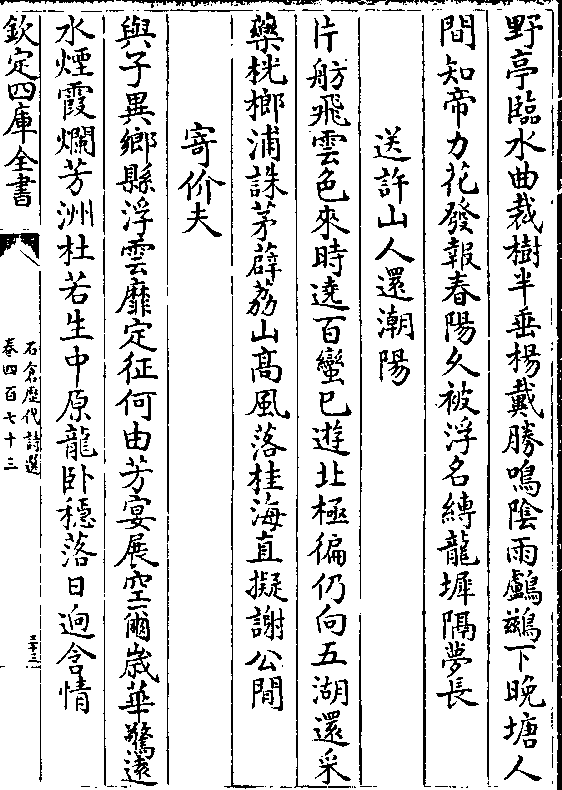 野亭臨水曲裁樹半垂楊戴勝鳴陰雨鸕鷀下晚塘人
間知帝力花發報春陽久被浮名縛龍墀隔夢長
送許山人還潮陽
片舫飛雲色來時遶百蠻已遊北極徧仍向五湖還采
藥桄榔浦誅茅薜荔山高風落桂海直擬謝公閒
寄价夫
與子異鄉縣浮雲靡定征何由芳宴展空爾嵗華驚遠
水煙霞爛芳洲杜若生中原龍卧穩落日迥含情
欽定四庫全書
石倉歴代詩選
卷四百七十三
三十三